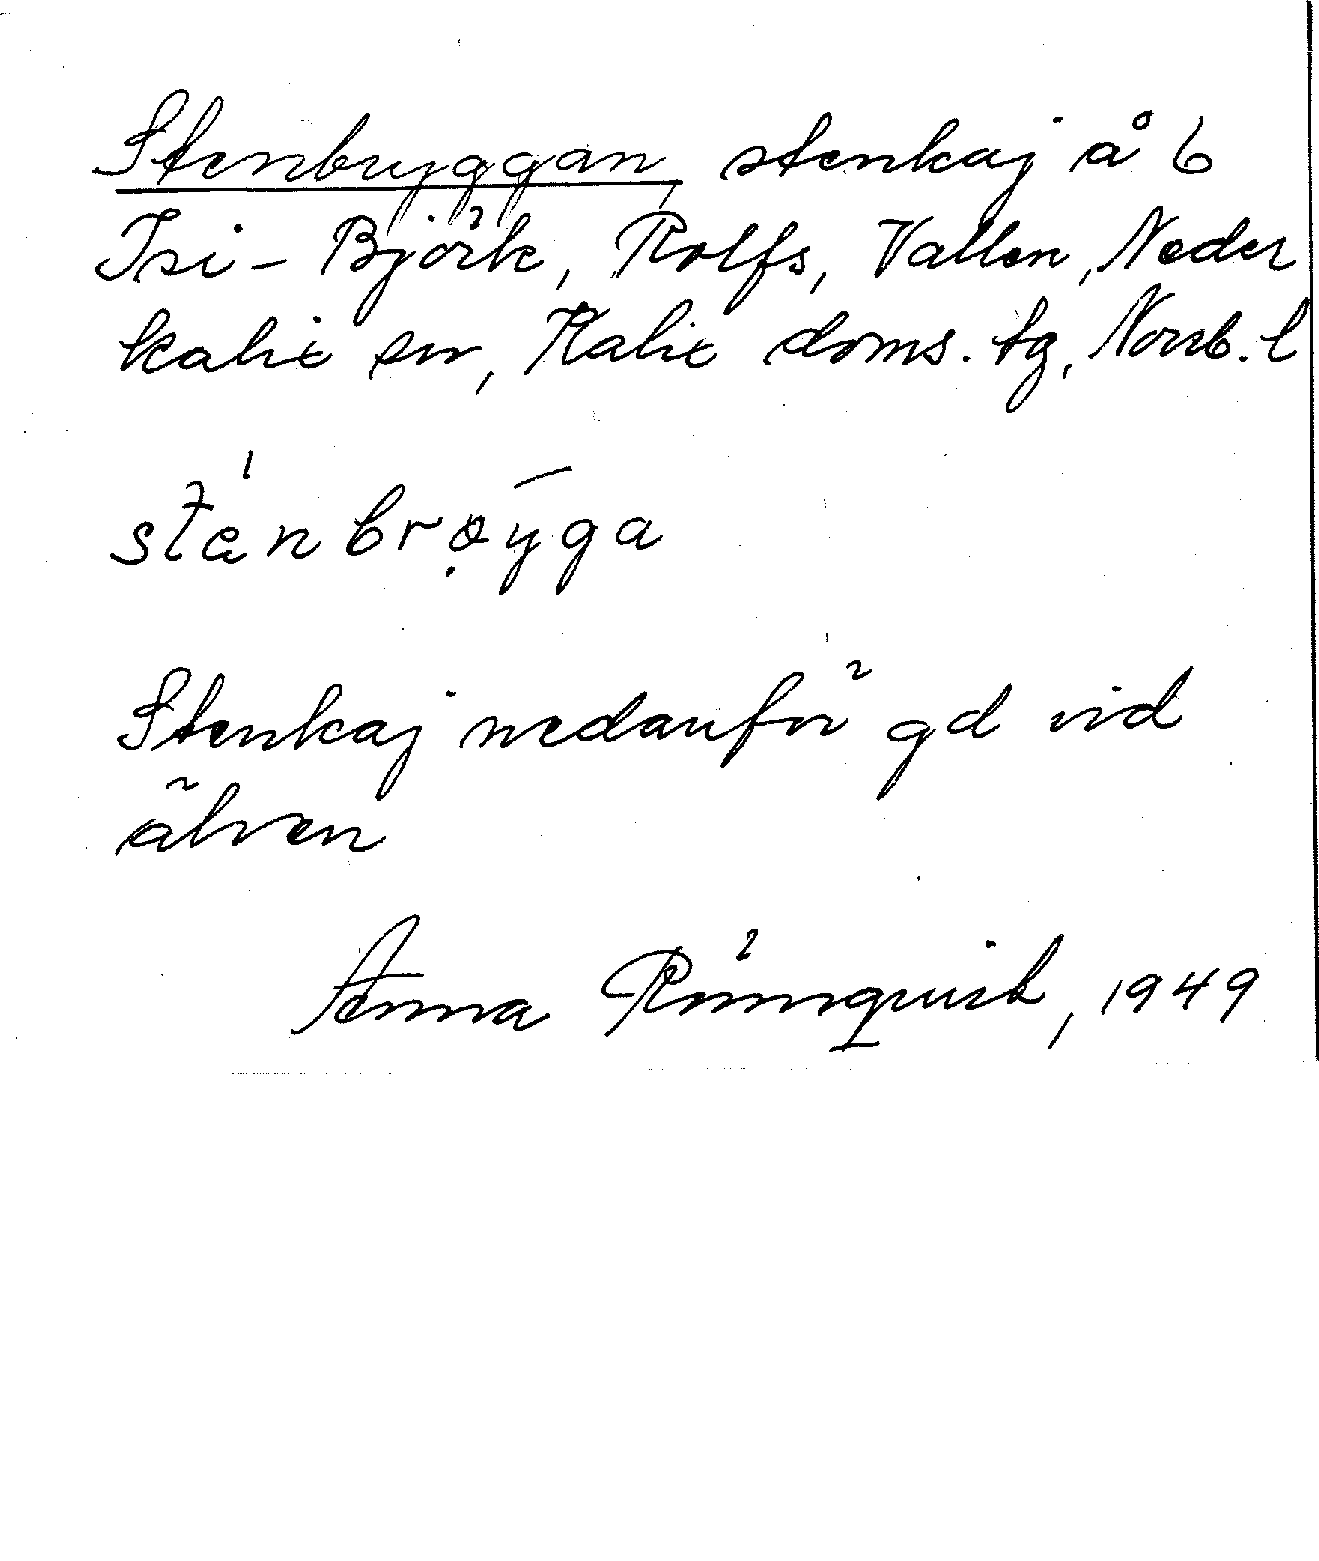 Stenbryggan, stenkaj å 6
Isi-Björk, Rolfs, Vallen, Neder
kalix sn, Kalix doms. tg, Norrb. l
sténbrøýga
Stenkaj nedanför gd vid
älven
Anna Rönnqvist, 1949